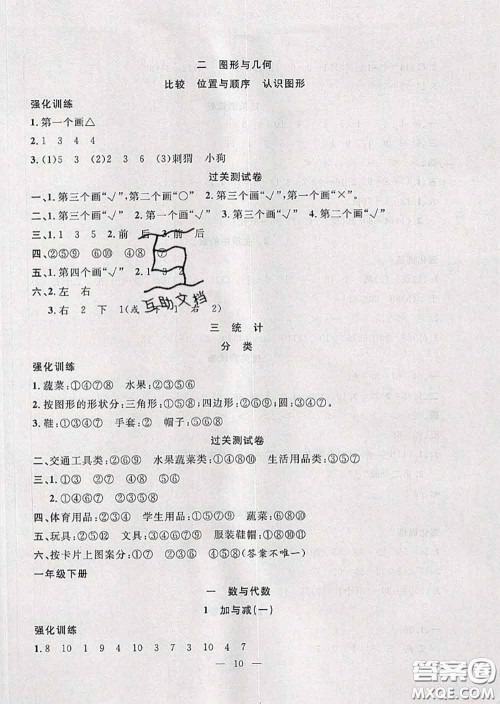 二 图形与几何
比较 位置与顺序 认识图形
强化训练
1.第一个画△
2.1 3 4 4
3.(1)5 3 (2)2 3 6 (3)刺猬 小狗
过关测试卷
一、1.第三个画“√”,第二个画“○” 2.第三个画“√”,第一个画“×”。
二、1.第三个画“√” 2.第一个画“√” 3.第二个画“√” 4.第二个画“√”
三、1.3 5 2.前 后 3.前 后
四、②⑤⑨ ①③④⑧ ⑦
五、1.第四个画“√” 2.1 3 2
六、2.左 右
3.右 2 下 1(或 1 右 2)
互助文档
三 统计
分类
强化训练
1.蔬菜:①④⑦⑧ 水果:②③⑤⑥
2.按图形的形状分:三角形:①⑤⑧ 正方形:②⑥⑨ 圆:③④⑦。
3.鞋:①③④⑦ 手套:② 帽子:⑤⑥⑧
过关测试卷
二、交通工具类:②⑥⑨ 水果蔬菜类:①④⑧⑩ 生活用品类:③⑤⑦
三、1.①③ ②⑦ ④⑤⑥
2.①③⑥⑦ ②④⑤
四、体育用品:②④ 学生用品:①③⑤⑦⑨ 蔬菜:⑥⑧⑩
五、玩具:②⑤⑪⑫ 文具:①③④⑦⑨ 服装鞋帽:⑥⑧⑩
六、按卡片上图案分:①③⑤⑦ ②④⑥⑧(答案不唯一)
一年级下册
一 数与代数
1 加与减(一)
强化训练
1.8 10 1 9 10 4 3 7 3 10 4 7
— 10 —
答案圈
MXQE.COM